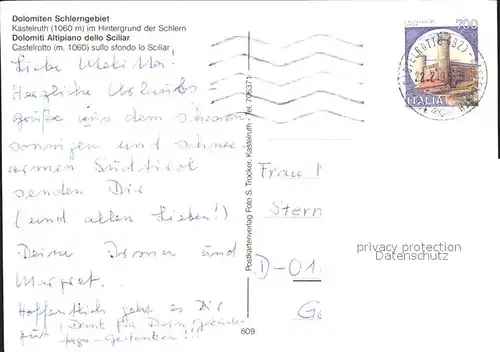 Dolomiten Schlerngebiet
Kastelruth (1060 m) im Hintergrund der Schlern
Dolomiti Altipiano dello Sciliar
Castelrotto (m. 1060) sullo sfondo lo Sciliar
Liebe
Herzliche Urlaubs-
grüße aus dem schönen
sonnigen und schnee-
armen Südtirol
senden Dir
(und allen Lieben!)
Deine Irmen und
Margret.
Hoffentlich geht es Dir
gut! Dank für Dein
tags-Gedanken!!!
Postkartenverlag Foto S. Trocker, Kastelruth - Tel. 706371
809
700
ITALIA
Frau
Stern
D-01
privacy protection
Datenschutz